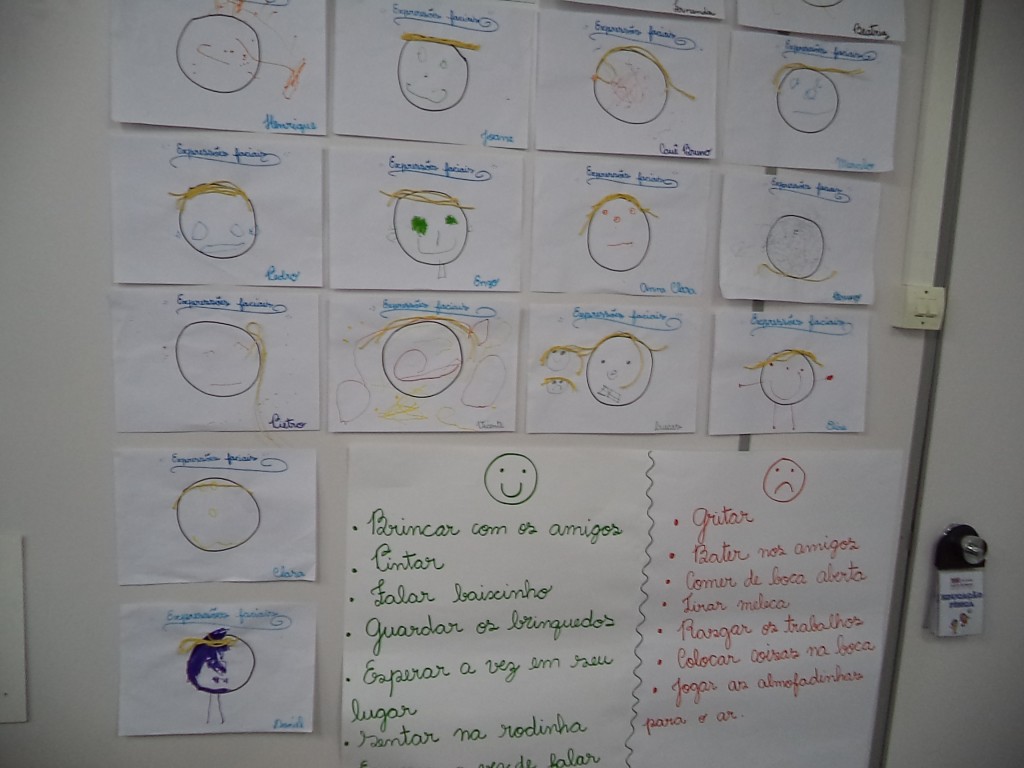 Beatriz
Expressões faciais
Henrique
Expressões faciais
Joana
Expressões faciais
Cauê Bruno
Expressões faciais
Expressões faciais
Pedro
Expressões faciais
Enzo
Expressões faciais
Anna Clara
Expressões faciais
Expressões faciais
Pietro
Expressões faciais
Expressões faciais
Lucas
Expressões faciais
Expressões faciais
Clara
Expressões faciais
• Brincar com os amigos
• Pintar
• Falar baixinho
• Guardar os brinquedos
• Esperar a vez em seu
lugar
• Sentar na rodinha
vez de falar
• Gritar
• Bater nos amigos
• Comer de boca aberta
• Tirar meleca
• Rasgar os trabalhos
• Colocar coisas na boca
• Jogar as almofadinhas
para o ar.
EDUCAÇÃO
FÍSICA